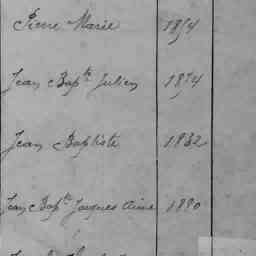 Pierre Marie 1854
Jean Bap.te Julien 1874
Jean Baptiste 1832
Jean Bap.te Jacques Aimé 1890